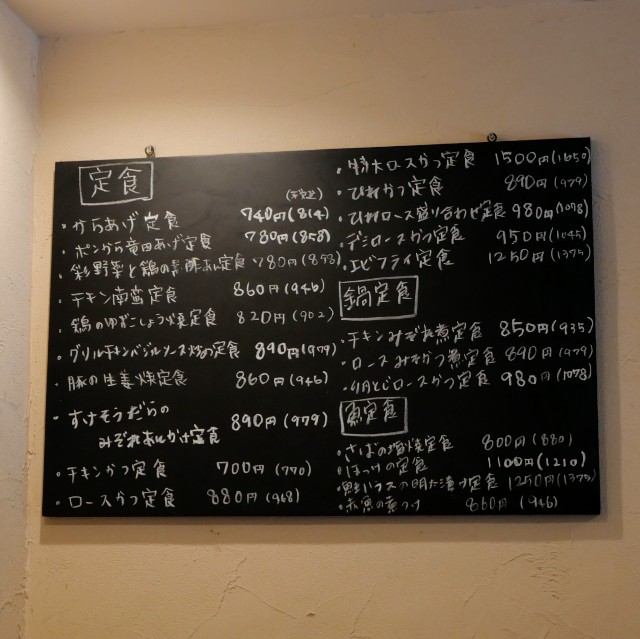 定食
(税込)
・からあげ定食 740円(814)
・ポンから竜田あげ定食 780円(858)
・彩野菜と鶏の黒酢あん定食 780円(858)
・チキン南蛮定食 860円(946)
・鶏のゆずこしょう焼定食 820円(902)
・グリルチキンバジルソース炒め定食 890円(979)
・豚の生姜焼定食 860円(946)
・すけそうだらの
みぞれあんかけ定食 890円(979)
・チキンかつ定食 700円(770)
・ロースかつ定食 880円(968)
・特大ロースかつ定食 1500円(1650)
・ひれかつ定食 890円(979)
・ひれロース盛り合わせ定食 980円(1078)
・デミロースかつ定食 950円(1045)
・エビフライ定食 1250円(1375)
鍋定食
・チキンみぞれ煮定食 850円(935)
・ロースみそかつ煮定食 890円(979)
・肉とじロースかつ定食 980円(1078)
魚定食
・さばの塩焼定食 800円(880)
・ほっけの定食 1100円(1210)
・鮭ハラスの明太漬け定食 1250円(1375)
・赤魚の煮つけ 860円(946)